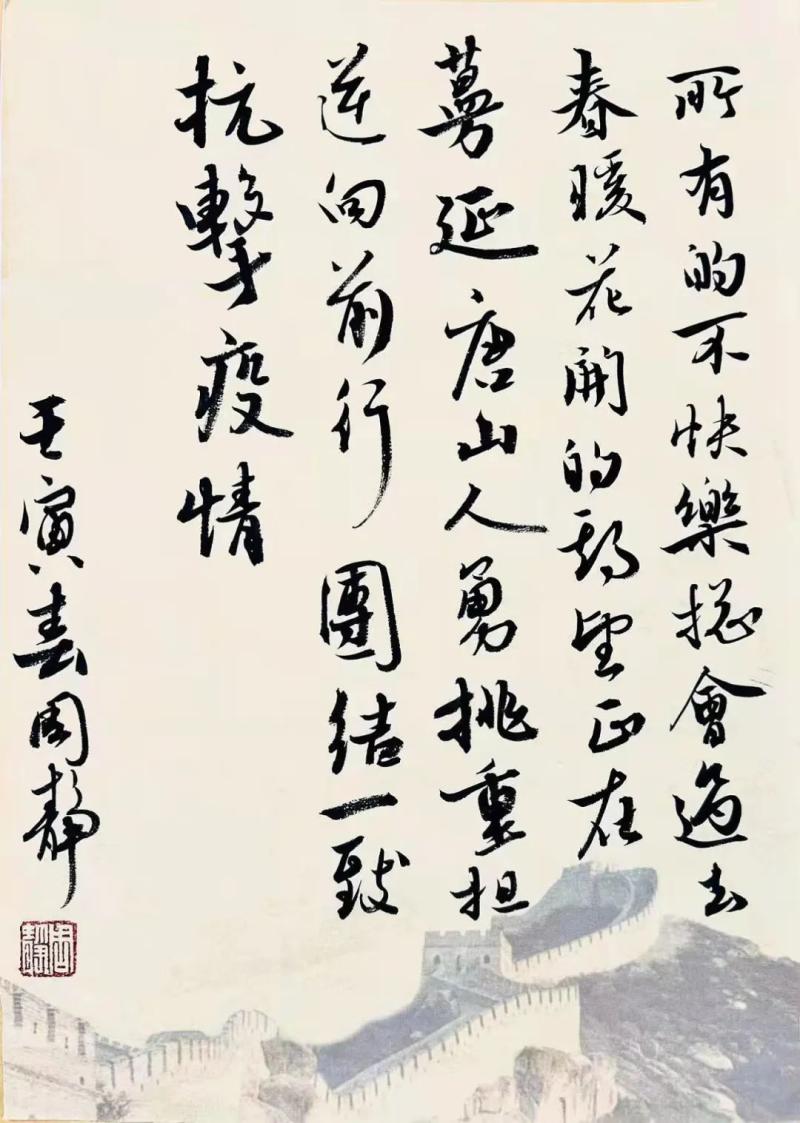 所有的不快樂總會過去
春暖花開的期望正在
蔓延唐山人勇挑重担
逆向前行團结一致
抗擊疫情
壬寅春周靜
周靜